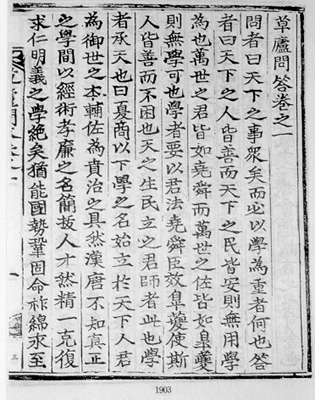 草廬問答卷之一
問者曰天下之事衆矣而必以學為重者何也答
者曰天下之人皆善而天下之民皆安則無用學
為也萬世之君皆如堯舜而萬世之佐皆如皐夔
則無學可也學者要以君法堯舜臣效皐夔使斯
人皆善而不困也天之生民立之君師者此也學
者承天也曰夏商以下學之名始立於天下人君
為御世之本輔佐為賁治之具然漢唐不知真正
之學間以經術孝廉之名簡拔人才然精一克復
求仁明義之學絶矣猶能國勢鞏固命祚綿永至
三
1903